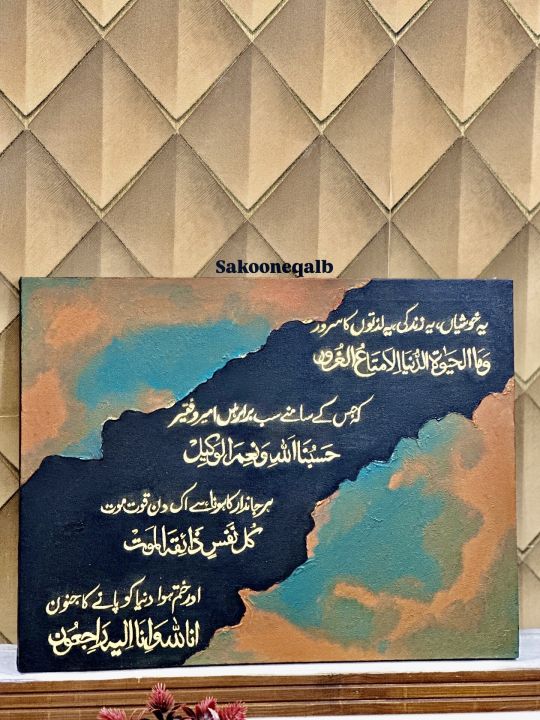 Sakooneqalb
یہ خوشیاں، یہ زندگی، یہ لذتوں کا سرور
وَمَا الحَیٰوۃُ الدُّنیَا اِلا مَتَاعُ الغُرُور
کہ جس کے سامنے سب برابر ہیں امیر و فقیر
حَسْبُنَا اللہُ وَنِعمَ الوَکِیلْ
ہر جاندار کا ہونا ہے اک دن فوت موت
کُل نَفْسٍ ذَائِقَۃ المَوت
اور ختم ہوا دنیا کو پانے کا جنون
انا للہ وَاِنَا اِلیہِ رَاجِعُون